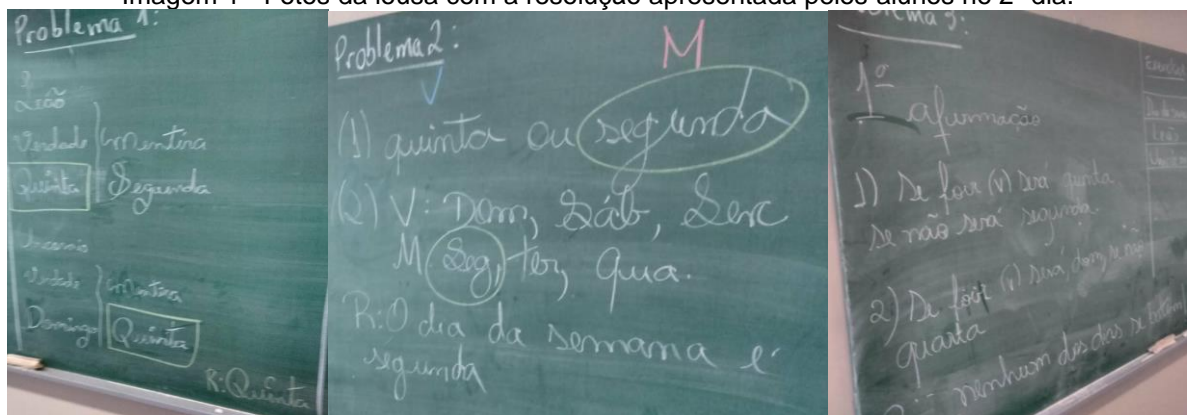 Imagem 1 - Fotos da lousa com a resolução apresentada pelos alunos no 2º dia.
Problema 1:
Leão
Verdade mentira
Quinta Segunda
Unicórnio
Verdade mentira
Domingo Quinta
R: Quinta
Problema 2:
V M
(1) quinta ou segunda
(2) V: Dom, Sáb, Sex
M Seg, ter, qua.
R: O dia da semana é
segunda
1º afirmação
1) Se for (v) será quinta
se não será segunda.
2) Se for (v) será, dom, se não
quarta
nenhum dos dias se